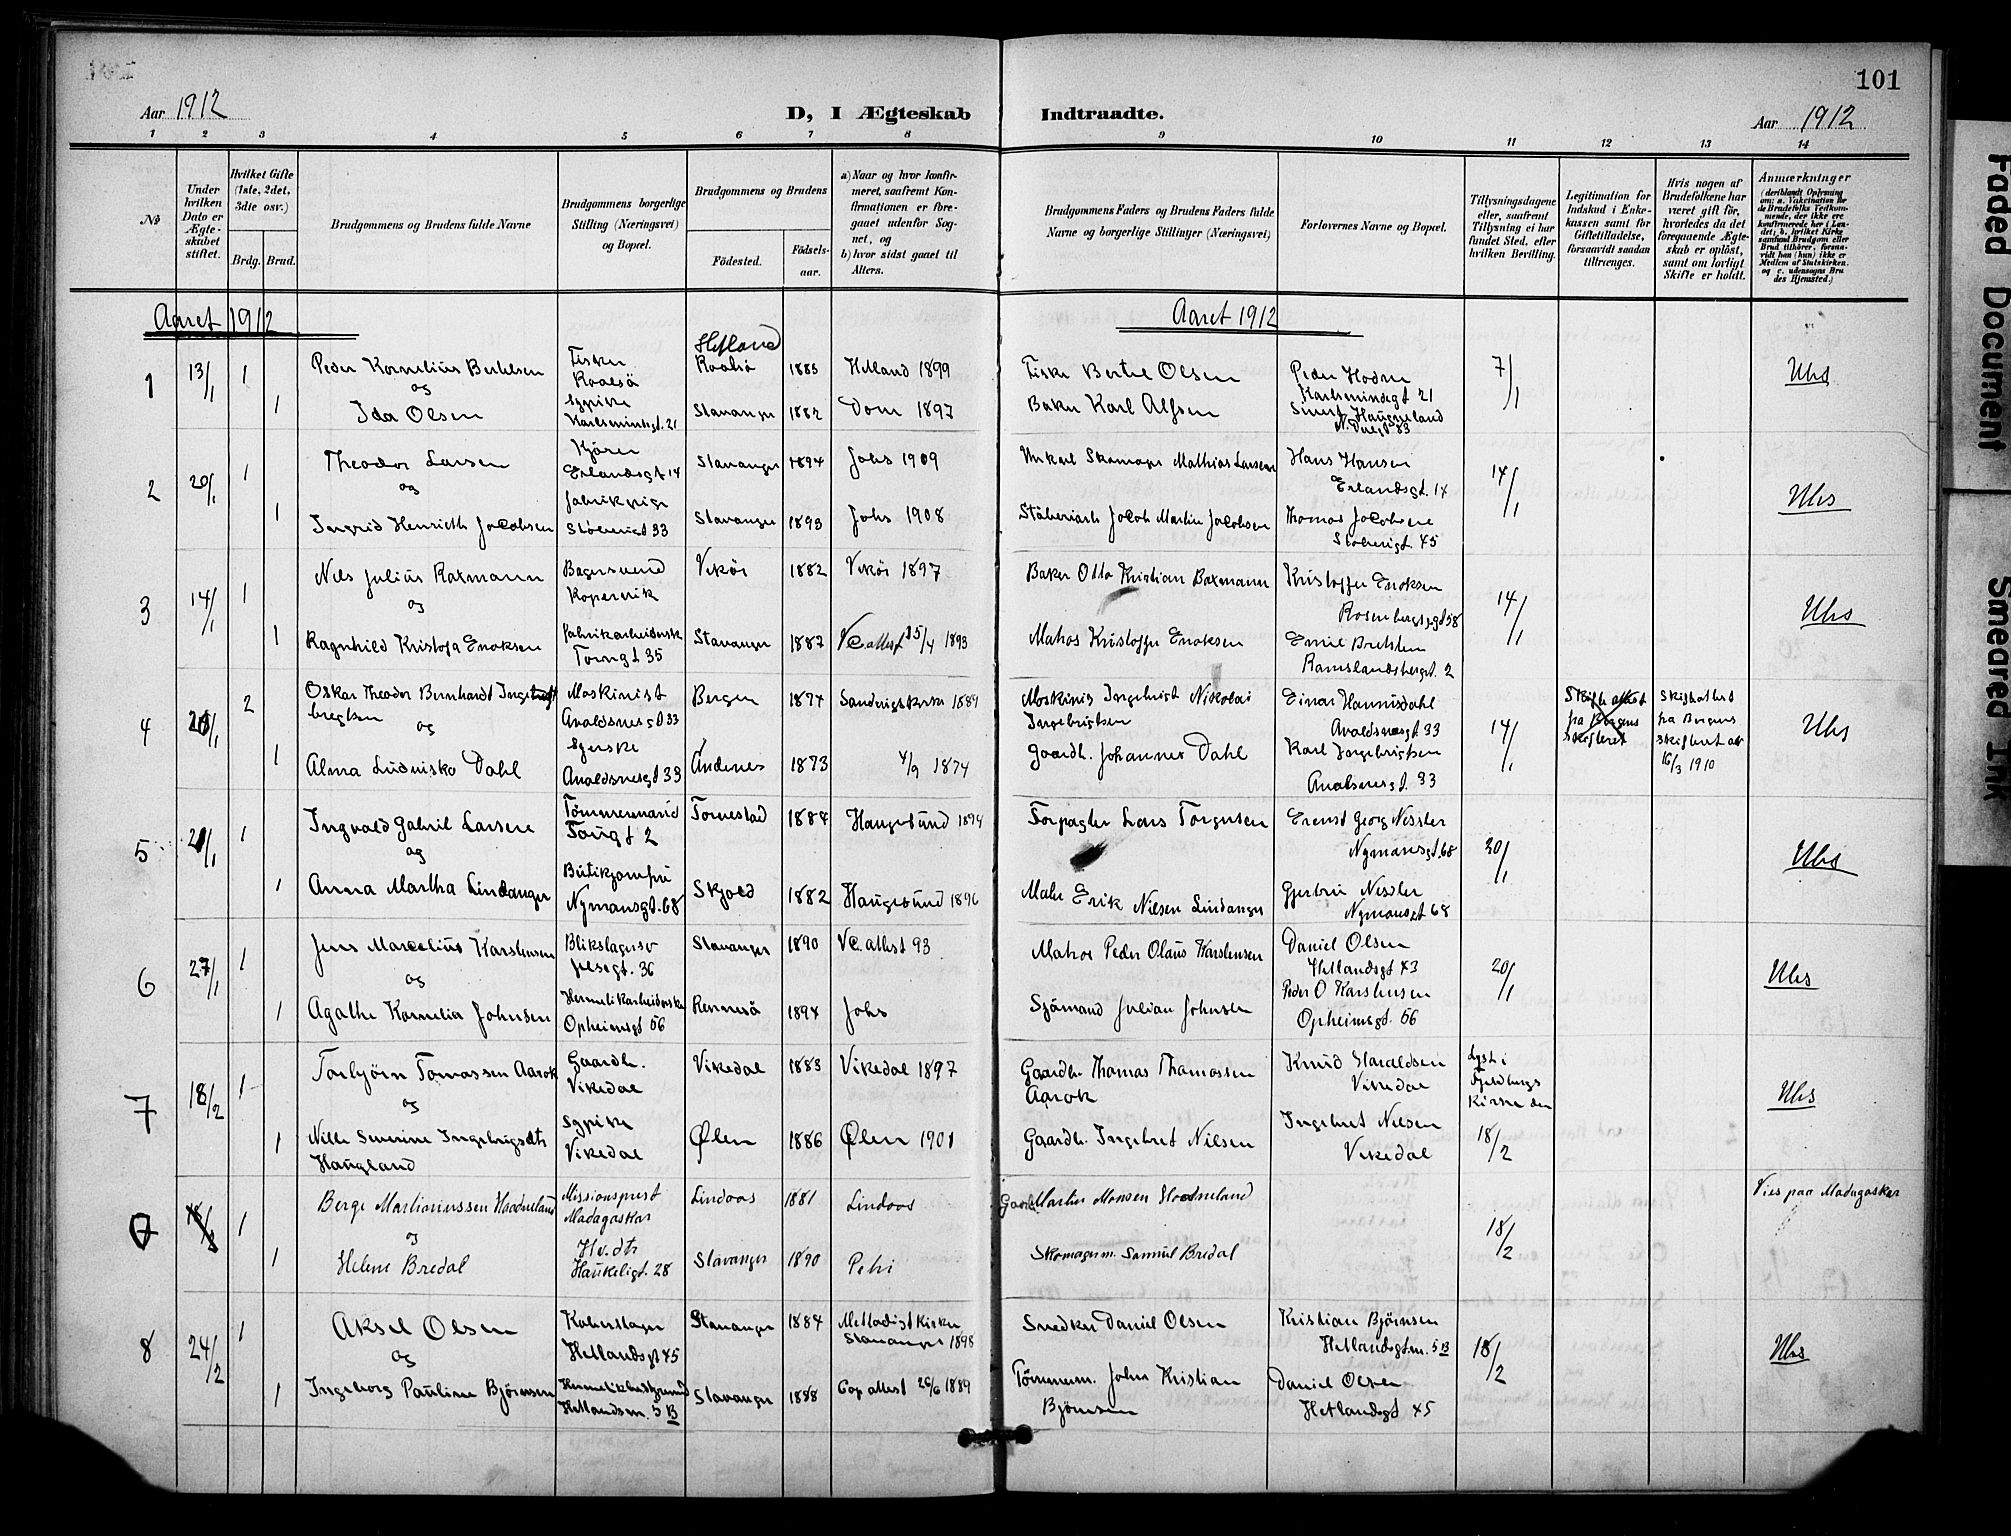 101
Aar 1912
D, I Ægteskab Indtraadte.
Aar 1912
1 2 3 4 5 6 7 8 9 10 11 12 13 14
№
Under hvilken Dato er Ægteskabet stiftet.
Hvilket Gifte (1ste, 2det, 3die osv.)
Brdg. Brud.
Brudgommens og Brudens fulde Navne
Brudgommens borgerlige Stilling (Næringsvei) og Bopæl.
Brudgommens og Brudens
Fødested.
Fødselsaar.
a) Naar og hvor konfirmeret, saafremt Konfirmationen er foregaaet udenfor Sognet, og
b) hvor sidst gaaet til Alters.
Brudgommens Faders og Brudens Faders fulde Navne og borgerlige Stillinger (Næringsvei)
Forlovernes Navne og Bopæl.
Tillysningsdagene eller, saafremt Tillysning ei har fundet Sted, efter hvilken Bevilling.
Legitimation for Indskud i Enkekassen samt for Giftetilladelse, forsaavidt saadan tiltrænges.
Hvis nogen af Brudefolkene har været gift før, hvorledes da det foregaaende Ægteskab er opløst, samt om lovligt Skifte er holdt.
Anmærkninger
Aaret 1912
Aaret 1912
1 13/1 1 Peder Kornelius Berthelsen Fisker Roalsö Hetland Roalsö 1883 Hetland 1899 Fisker Bertel Olsen Peder Hodne Karlsmindegt 21 7/1 Uhs
og
1 Ida Olsen Sypike Karlsmindegt. 21 Stavanger 1882 Dom 1897 Baker Karl Alfsen
2 20/1 1 Theodor Larsen Kjører Erlandsgt 14 Stavanger 1894 Johs 1909 Mathias Larsen Hans Hansen Erlandsgt. 14 14/1 Uhs
og
1 Ingrid Henriette Jacobsen Fabrikpige 33 Stavanger 1893 Johs 1908 Jacob Martin Jacobsen Thomas Jacobsen 45
3 14/1 1 Nils Julius Baxmann Bagersvend Kopervik Vikör 1882 Vikör 1897 Baker Otto Kristian Baxmann Kristoffer Enoksen Rosenbergsgt 58 14/1 Uhs
og
1 Ragnhild Kristofa Enoksen Fabrikarbeiderske Torngt 35 Stavanger 1887 Matros Kristoffer Enoksen Emil Ramslandsbergt. 2
4 1 2 Oskar Theodor Bernhardt Ingebregtsen Maskinist Avaldsnesgt 33 Bergen 1874 Sandvigskirken 1889 Maskinist Ingebrigt Nikolai Ingebrigtsen Einar Hannisdahl Avaldsnesgt 33 14/1 Skifteattest fra Bergens Skifteret Skifteattest fra Bergens Skifteret av 16/3 1910 Uhs
og
1 Alma Ludviska Dahl Syerske Avaldsnesgt 33 Andenes 1873 4/9 1874 Gaardb. Johannes Dahl Karl Ingebrigtsen Avaldsnesgt. 33
5 1 Ingvald Gabriel Larsen Tømmermand Torngt 2 Tornestad 1884 Haugesund 1894 Forpagter Lars Torgersen Ernst Georg Nessler Nymansgt. 68 20/1 Uhs
og
1 Anna Martha Lindanger Butikjomfru Nymansgt. 68 Skjold 1882 Haugesund 1896 Maler Erik Nilsen Lindanger Nessler Nymansgt 68
6 27/1 1 Jens Marcelius Karstensen Blikslagersv 36 Stavanger 1890 Vc. attest 93 Matros Peder Olaus Karstensen Daniel Olsen Hetlandsgt 43 20/1 Uhs
og
1 Agathe Kornelia Johnsen Hermetikarbeiderske Opheimsgt 56 Rennesö 1894 Johs Sjömand Julian Johnsen Peder O Karstensen Opheimsgt. 56
7 18/2 1 Torbjörn Tomassen Aarok Gaardb. Vikedal Vikedal 1883 Vikedal 1897 Gaardb. Thomas Thomassen Aarok Knud Haraldsen Vikedal Lyst i Fjeldbergs Kirke den 18/2 Uhs
og
1 Nille Severine Ingebrigsdtr Haugland Sypike Vikedal Ølen 1886 Ølen 1901 Gaardb. Ingebret Nilsen Ingebret Nilsen Vikedal
1 Berge Martinussen Haadneland Missionsprest Madagaskar Lindaas 1881 Lindaas Gaardb. Martin Monsen Haadneland 18/2 Vies paa Madagaskar
og
1 Helene Bredal Hv.dtr Haukeligt. 28 Stavanger 1890 Petri Skomagerm. Samuel Bredal
8 24/2 1 Aksel Olsen Koberslager Hetlandsgt 45 Stavanger 1884 Methodistkirken Stavanger 1898 Snedker Daniel Olsen Kristian Bjørnsen Hetlandsgtm. 5 B 18/2 Uhs
og
1 Ingeborg Pauline Bjørnsen Hetlandsm. 5 B Stavanger 1888 Cop attest 26/6 1889 Tømmerm. John Kristian Bjørnsen Daniel Olsen Hetlandsgt 45
Faded Document
Smeared Ink